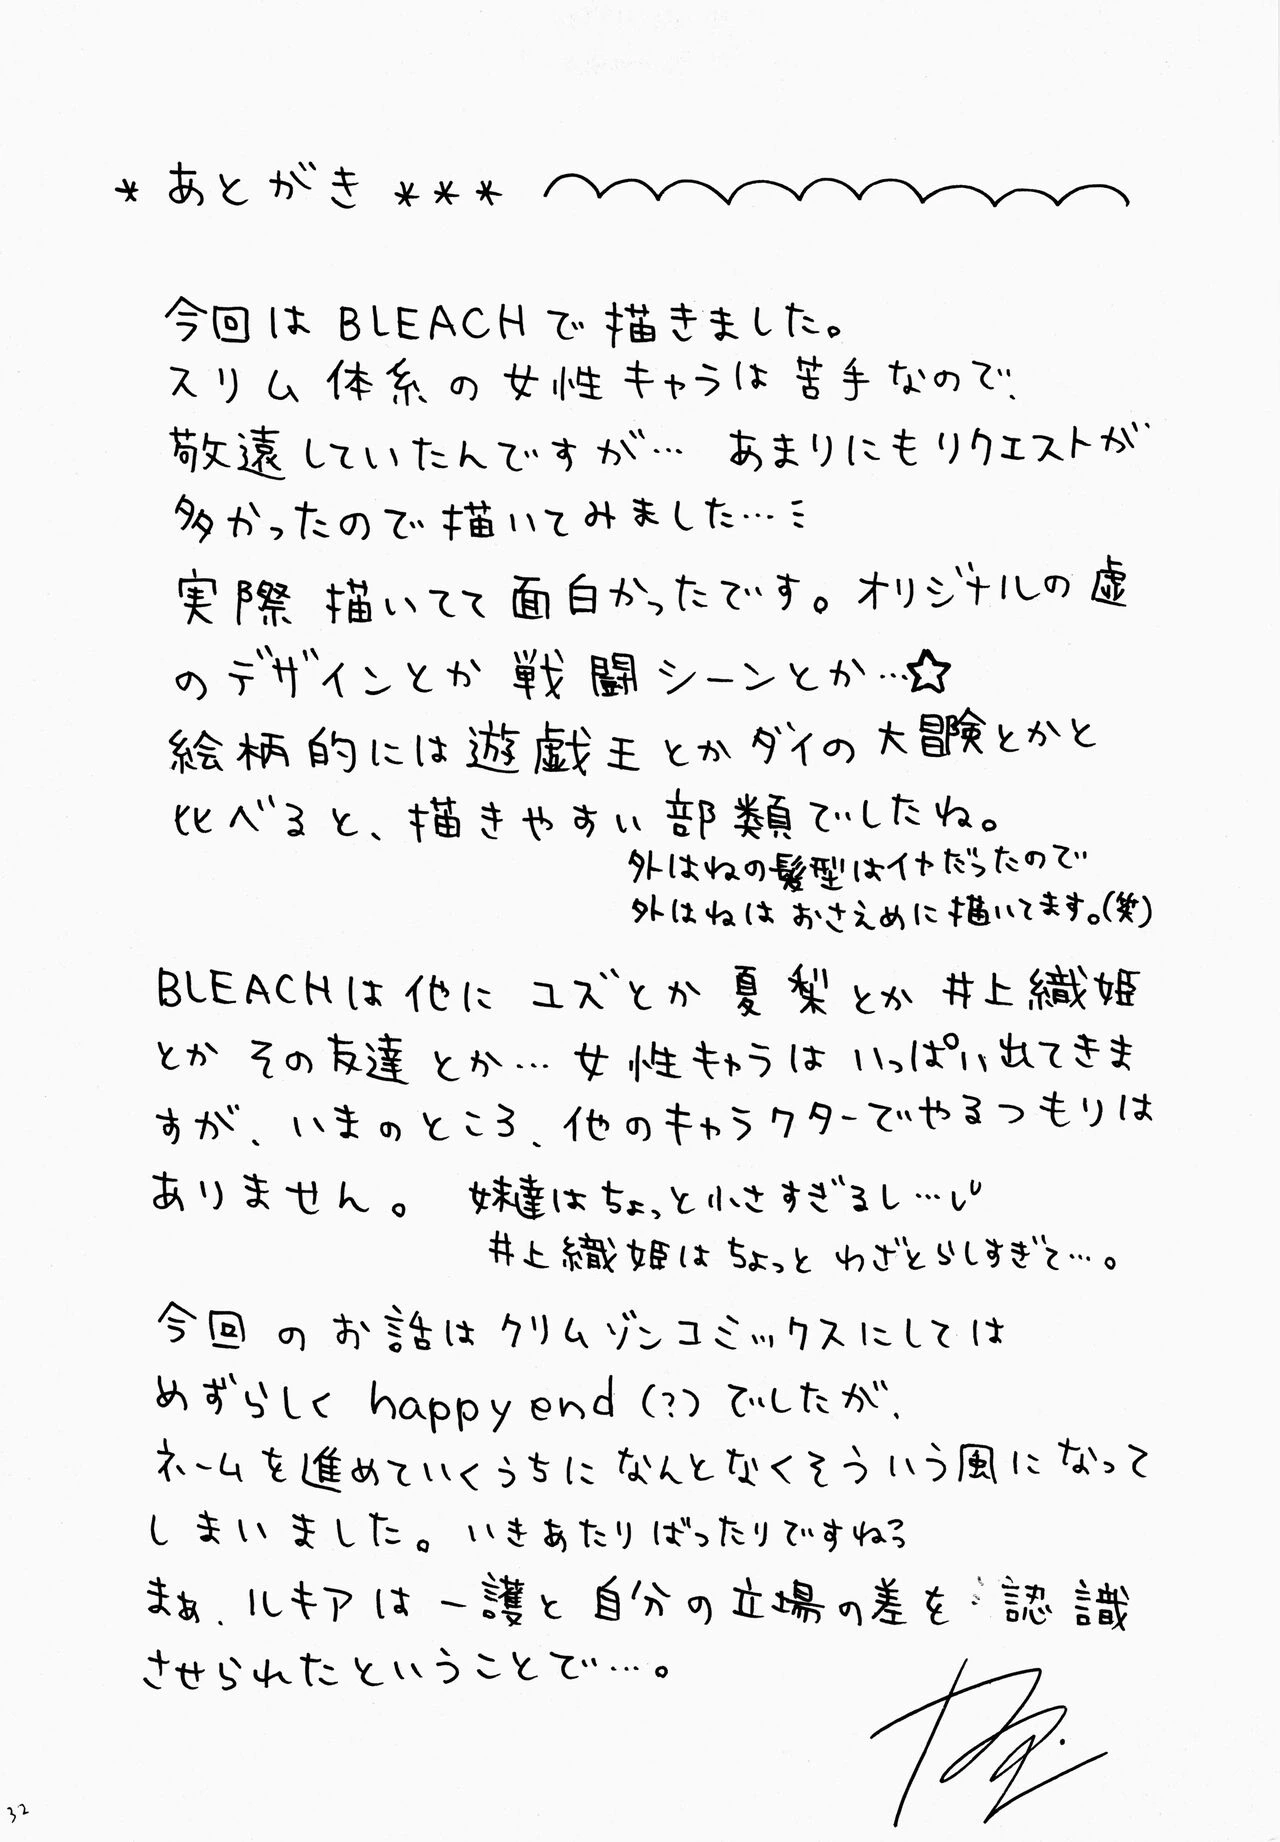 * あとがき ***
今回は BLEACH で描きました。
スリム体系の女性キャラは苦手なので、
敬遠していたんですが… あまりにもリクエストが
多かったので描いてみました…
実際描いてて面白かったです。オリジナルの虚
のデザインとか戦闘シーンとか…☆
絵柄的には遊戯王とかダイの大冒険とかと
比べると、描きやすい部類でしたね。
外はねの髪型はイヤだったので
外はねはおさえめに描いてます。(笑)
BLEACHは他に ユズとか夏梨とか井上織姫
とかその友達とか…女性キャラはいっぱい出てきま
すが、いまのところ、他のキャラクターでやるつもりは
ありません。 妹達はちょっと小さすぎるし…
井上織姫はちょっと わざとらしすぎて…。
今回のお話はクリムゾンコミックスにしては
めずらしく happy end (?) でしたが、
ネームを進めていくうちになんとなくそういう風になって
しまいました。いきあたりばったりですねぇ
まぁ、ルキアは一護と自分の立場の差を 認識
させられたということで…。
32